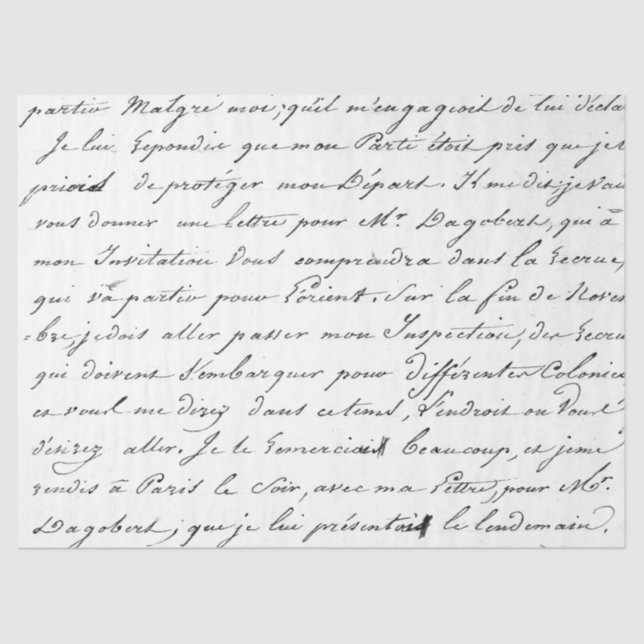 partir Malgré moi, qu'il m'engagioit de lui décla
Je lui repondis que mon Parti étoit pris que je
priois de protéger mon Départ. Il me dit; je vai
vous donner une lettre pour Mr. Dagobert, qui à
mon Invitation Vous comprendra dans la recrue,
qui va partir pour Lorient. Sur la fin de Novem
=bre, je dois aller passer mon Inspection, des Recru
qui doivent s'embarquer pour différentes Colonies
et vous me direz dans ce tems, L'endroit ou Vous
désirez aller. Je le remerciai beaucoup, et je me
rendis à Paris le Soir, avec ma Lettre, pour Mr.
Dagobert, que je lui présentai le lendemain.